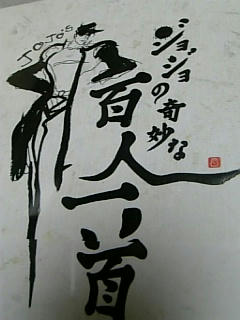 JOJO'S
ジョジョ
の奇妙な
百人一首